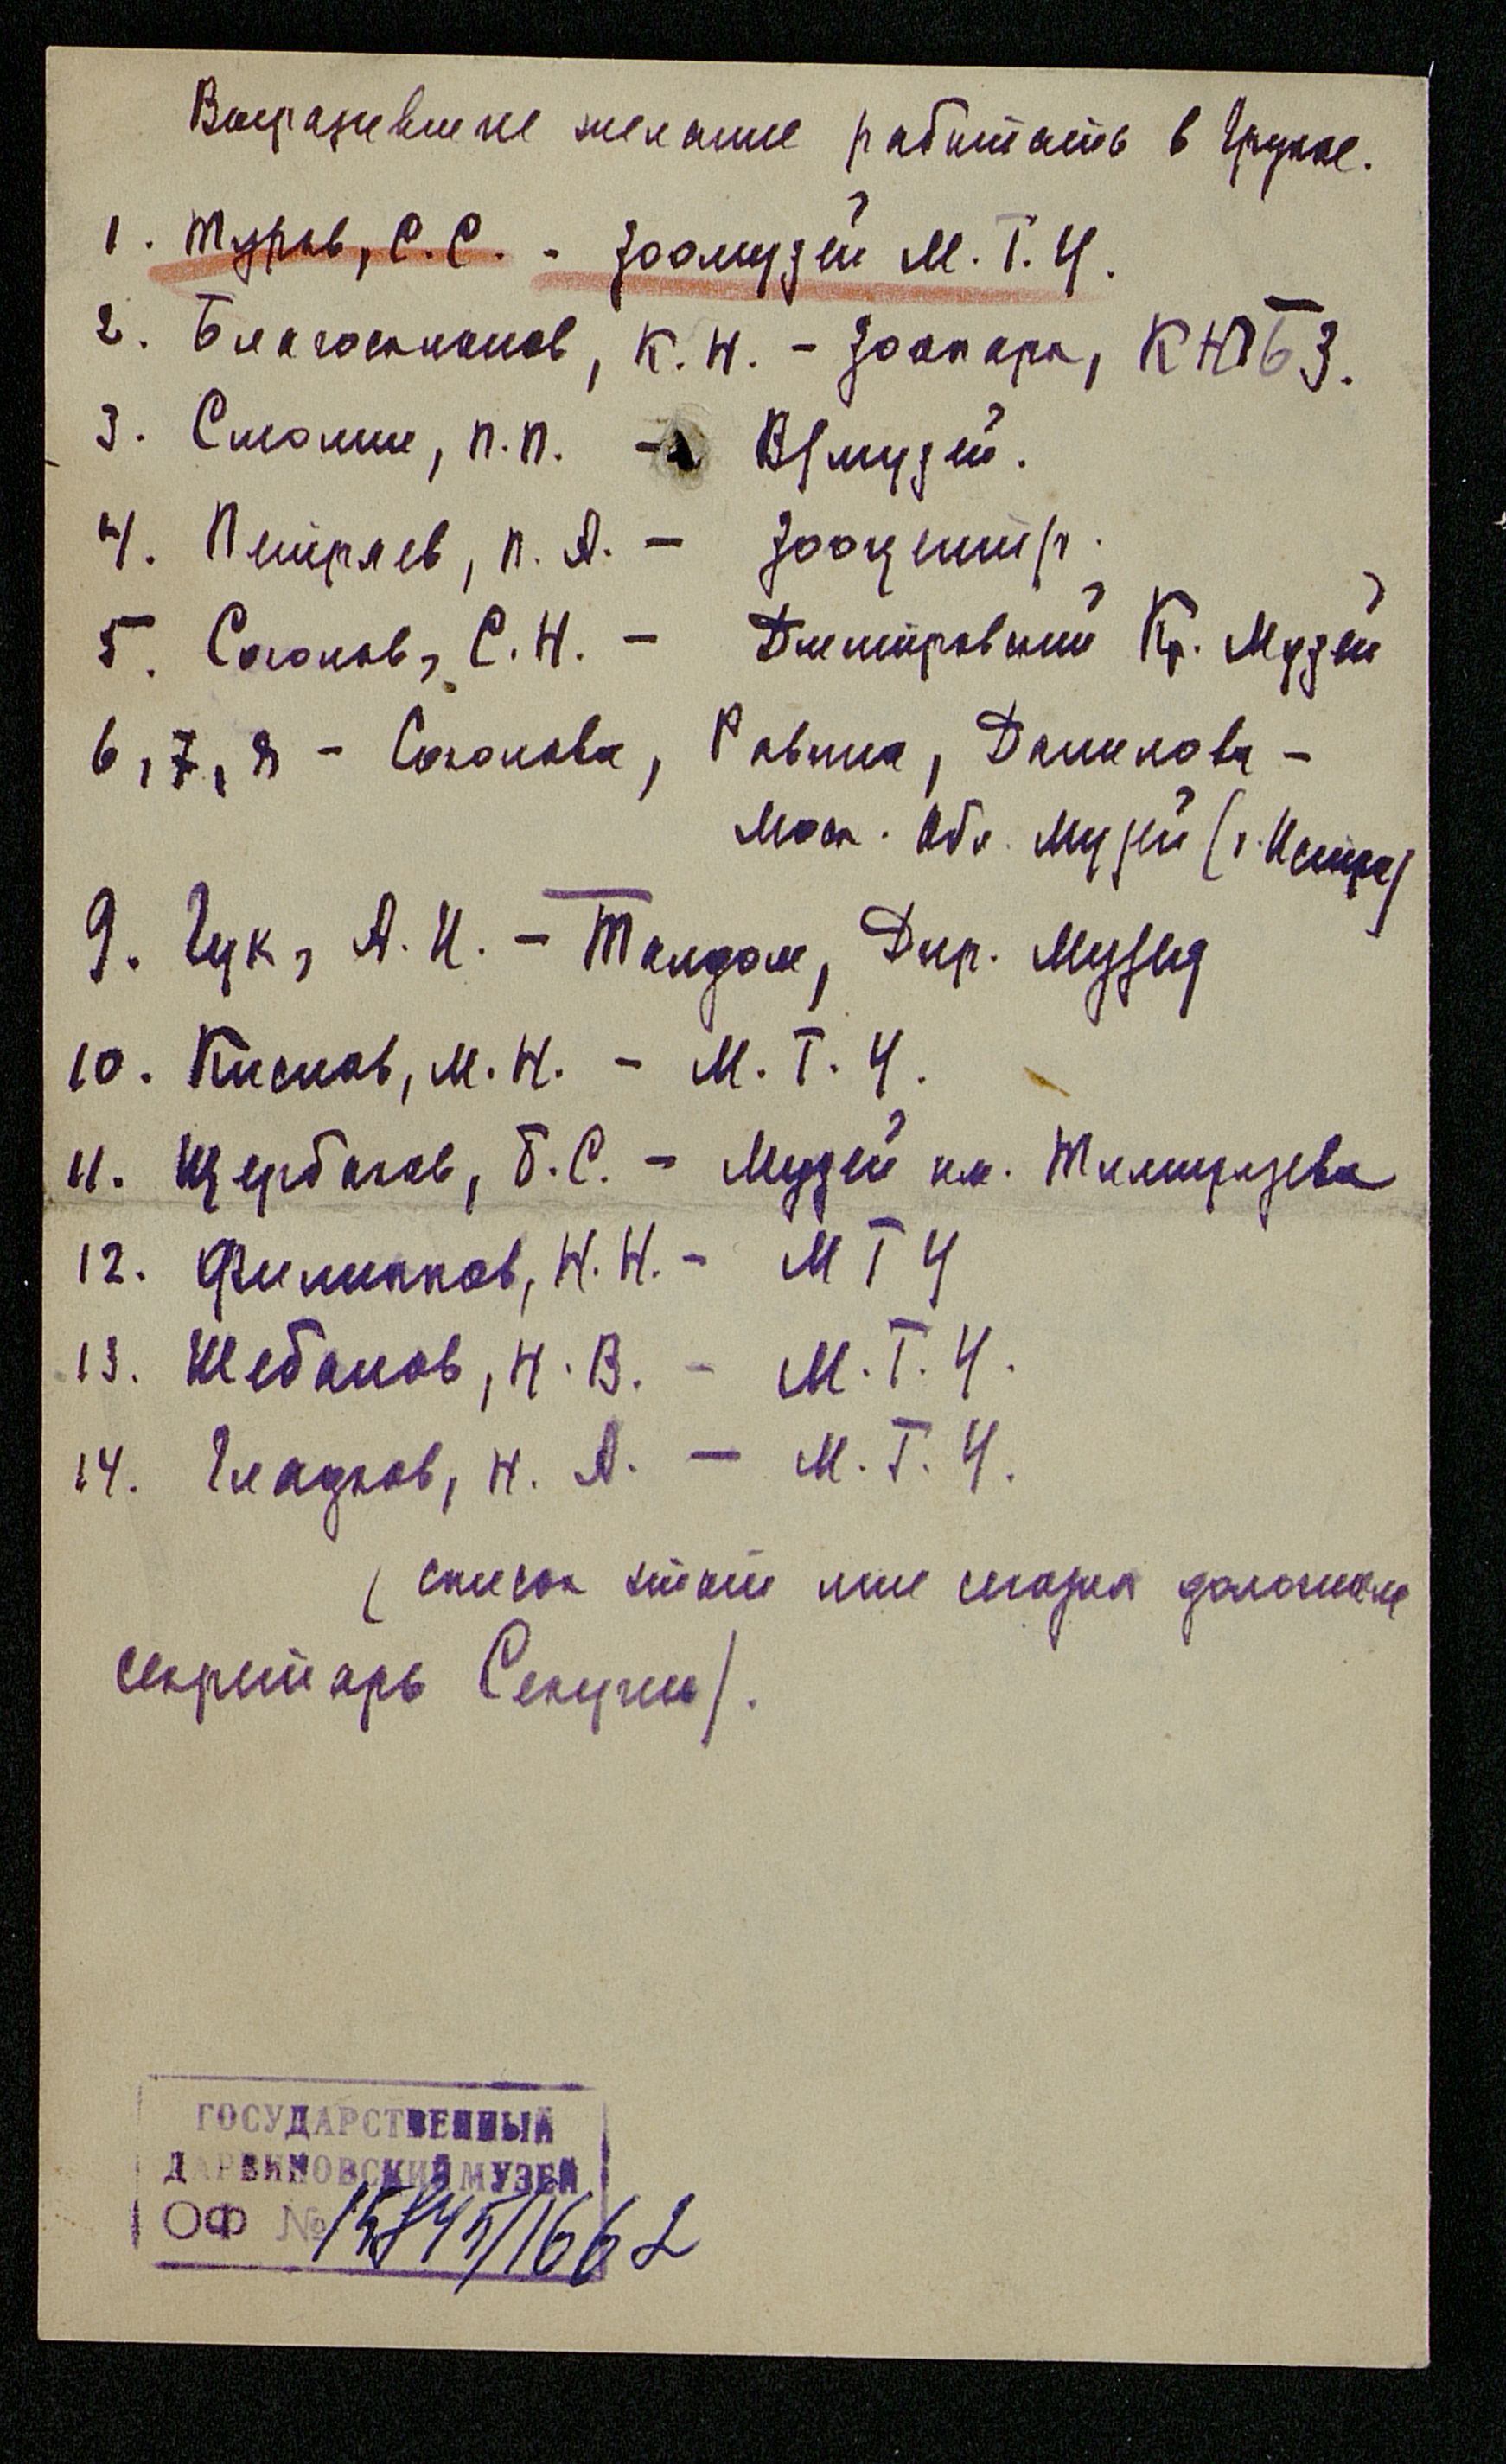 Выразившие желание работать в Группе.
1. Туров, С.С. - Зоомузей М.Г.У.
2. Благосклонов, К.Н. - Зоопарк, КЮБЗ.
3. Смолин, П.П. - музей.
4. Петряев, П.А. - Зооцентр.
5. Соколов, С.Н. - Дмитровский Кр. Музей
6,7,8 - Соколова, Равина, Данилова -
Моск. Обл. Музей (г. Истра)
9. Гук, А.И. - Талдом, Дир. Музея
10. М.Н. - М.Г.У.
11. Щербаков, Б.С. - Музей им. Тимирязева
12. Филиппов, Н.Н. - МГУ
13. Шебанов, Н.В. - М.Г.У.
14. Гладков, Н.А. - М.Г.У.
(список этот мне сегодня доложила
секретарь Секции).
ГОСУДАРСТВЕННЫЙ
ДАРВИНОВСКИЙ МУЗЕЙ
ОФ № 15845/1662